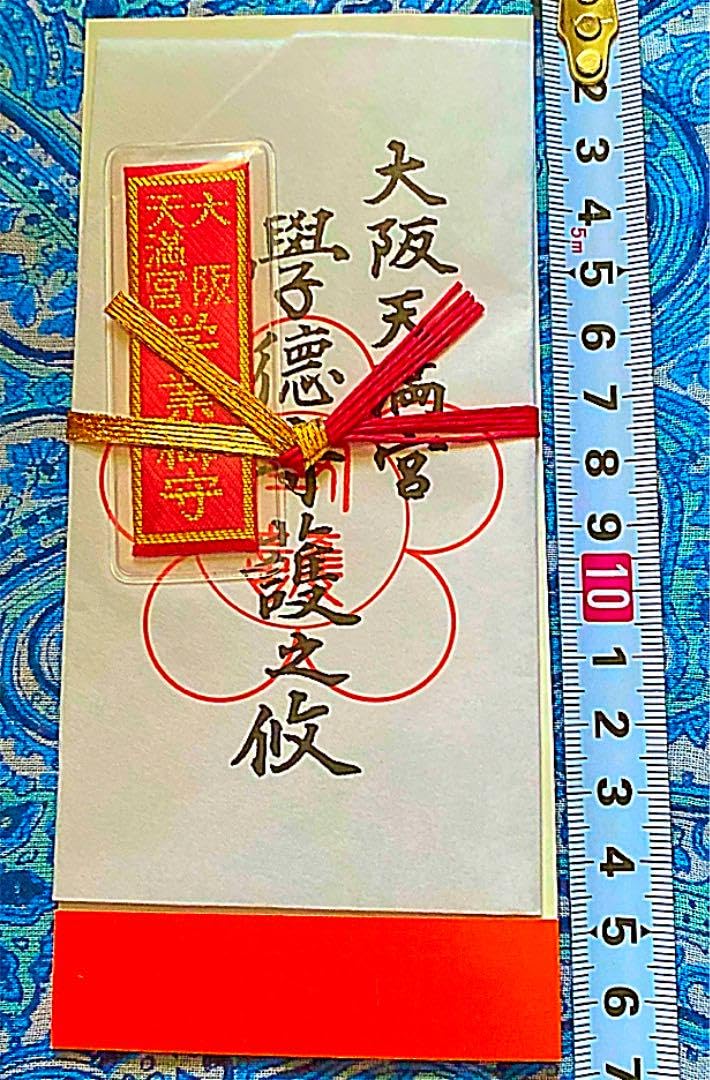 大阪天満宮
學德守護之攸
大阪
天満宮
学業御守
2
3
4
5m
5
6
7
8
9
10
1
2
3
4
5
6
7